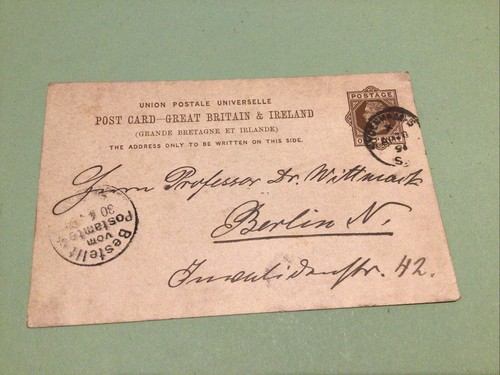 UNION POSTALE UNIVERSELLE
POST CARD—GREAT BRITAIN & IRELAND
(GRANDE BRETAGNE ET IRLANDE)
THE ADDRESS ONLY TO BE WRITTEN ON THIS SIDE.
POSTAGE
Herrn Professor Dr. Wittmack
Berlin N.
Invalidenstr. 42.
Bestellt
vom
Postamte
30 4